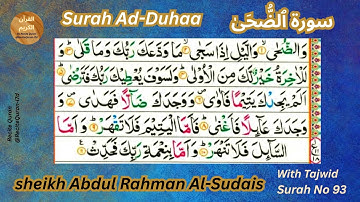 القرآن الكريم
Surah Ad-Duhaa
سورة ٱلضُّحَىٰ
وَالضُّحٰىۙ ۱ وَالَّيْلِ اِذَا سَجٰىۙ ۲ مَا وَدَّعَكَ رَبُّكَ وَمَا قَلٰىؕ ۳ وَ
لَلْاٰخِرَةُ خَيْرٌ لَّكَ مِنَ الْاُوْلٰىؕ ۴ وَلَسَوْفَ يُعْطِيْكَ رَبُّكَ فَتَرْضٰىؕ ۵
اَلَمْ يَجِدْكَ يَتِيْمًا فَاٰوٰى ۶ وَوَجَدَكَ ضَآلًّا فَهَدٰى ۷ وَ
وَجَدَكَ عَآئِلًا فَاَغْنٰىؕ ۸ فَاَمَّا الْيَتِيْمَ فَلَا تَقْهَرْؕ ۹ وَاَمَّا
السَّآئِلَ فَلَا تَنْهَرْؕ ۱۰ وَاَمَّا بِنِعْمَةِ رَبِّكَ فَحَدِّثْ ۱۱
Recite Quran
@ReciteQuran-ltd
sheikh Abdul Rahman Al-Sudais
With Tajwid
Surah No 93